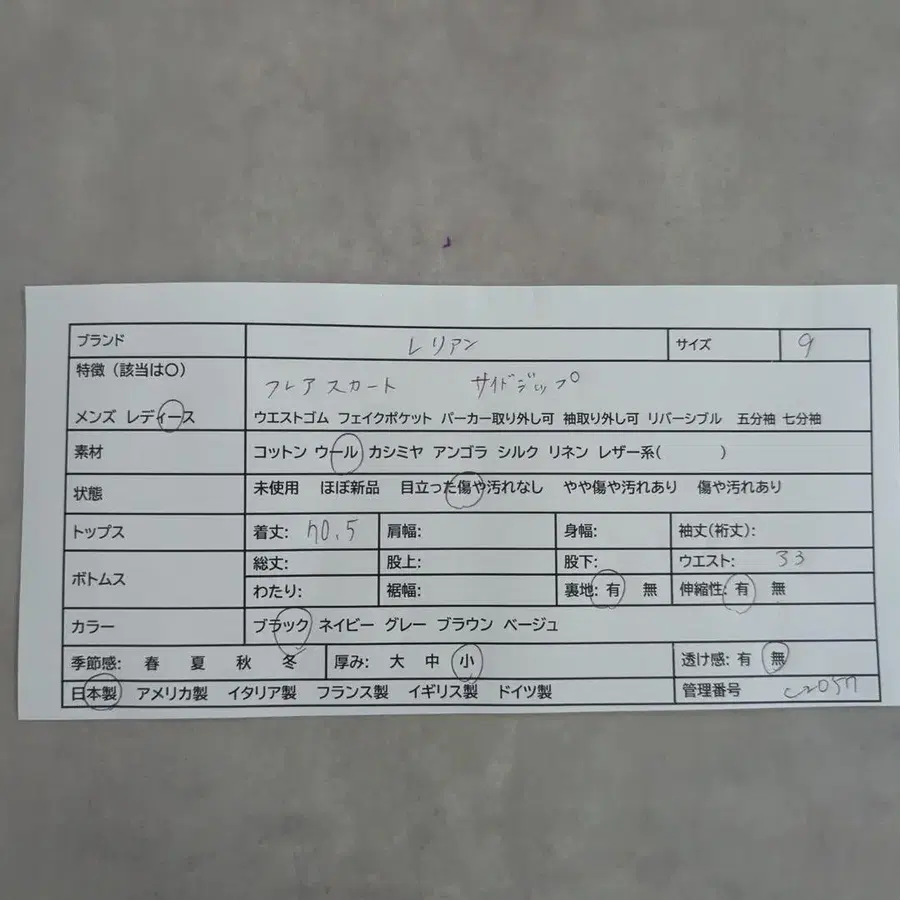 ブランド レリアン サイズ 9
特徴（該当は〇）
フレアスカート サイドジップ
メンズ レディース ウエストゴム フェイクポケット パーカー取り外し可 袖取り外し可 リバーシブル 五分袖 七分袖
素材 コットン ウール カシミヤ アンゴラ シルク リネン レザー系( )
状態 未使用 ほぼ新品 目立った傷や汚れなし やや傷や汚れあり 傷や汚れあり
トップス 着丈: 70.5 肩幅: 身幅: 袖丈(裄丈):
ボトムス 総丈: 股上: 股下: ウエスト: 33
わたり: 裾幅: 裏地: 有 無 伸縮性: 有 無
カラー ブラック ネイビー グレー ブラウン ベージュ
季節感: 春 夏 秋 冬 厚み: 大 中 小 透け感: 有 無
日本製 アメリカ製 イタリア製 フランス製 イギリス製 ドイツ製 管理番号 c2057